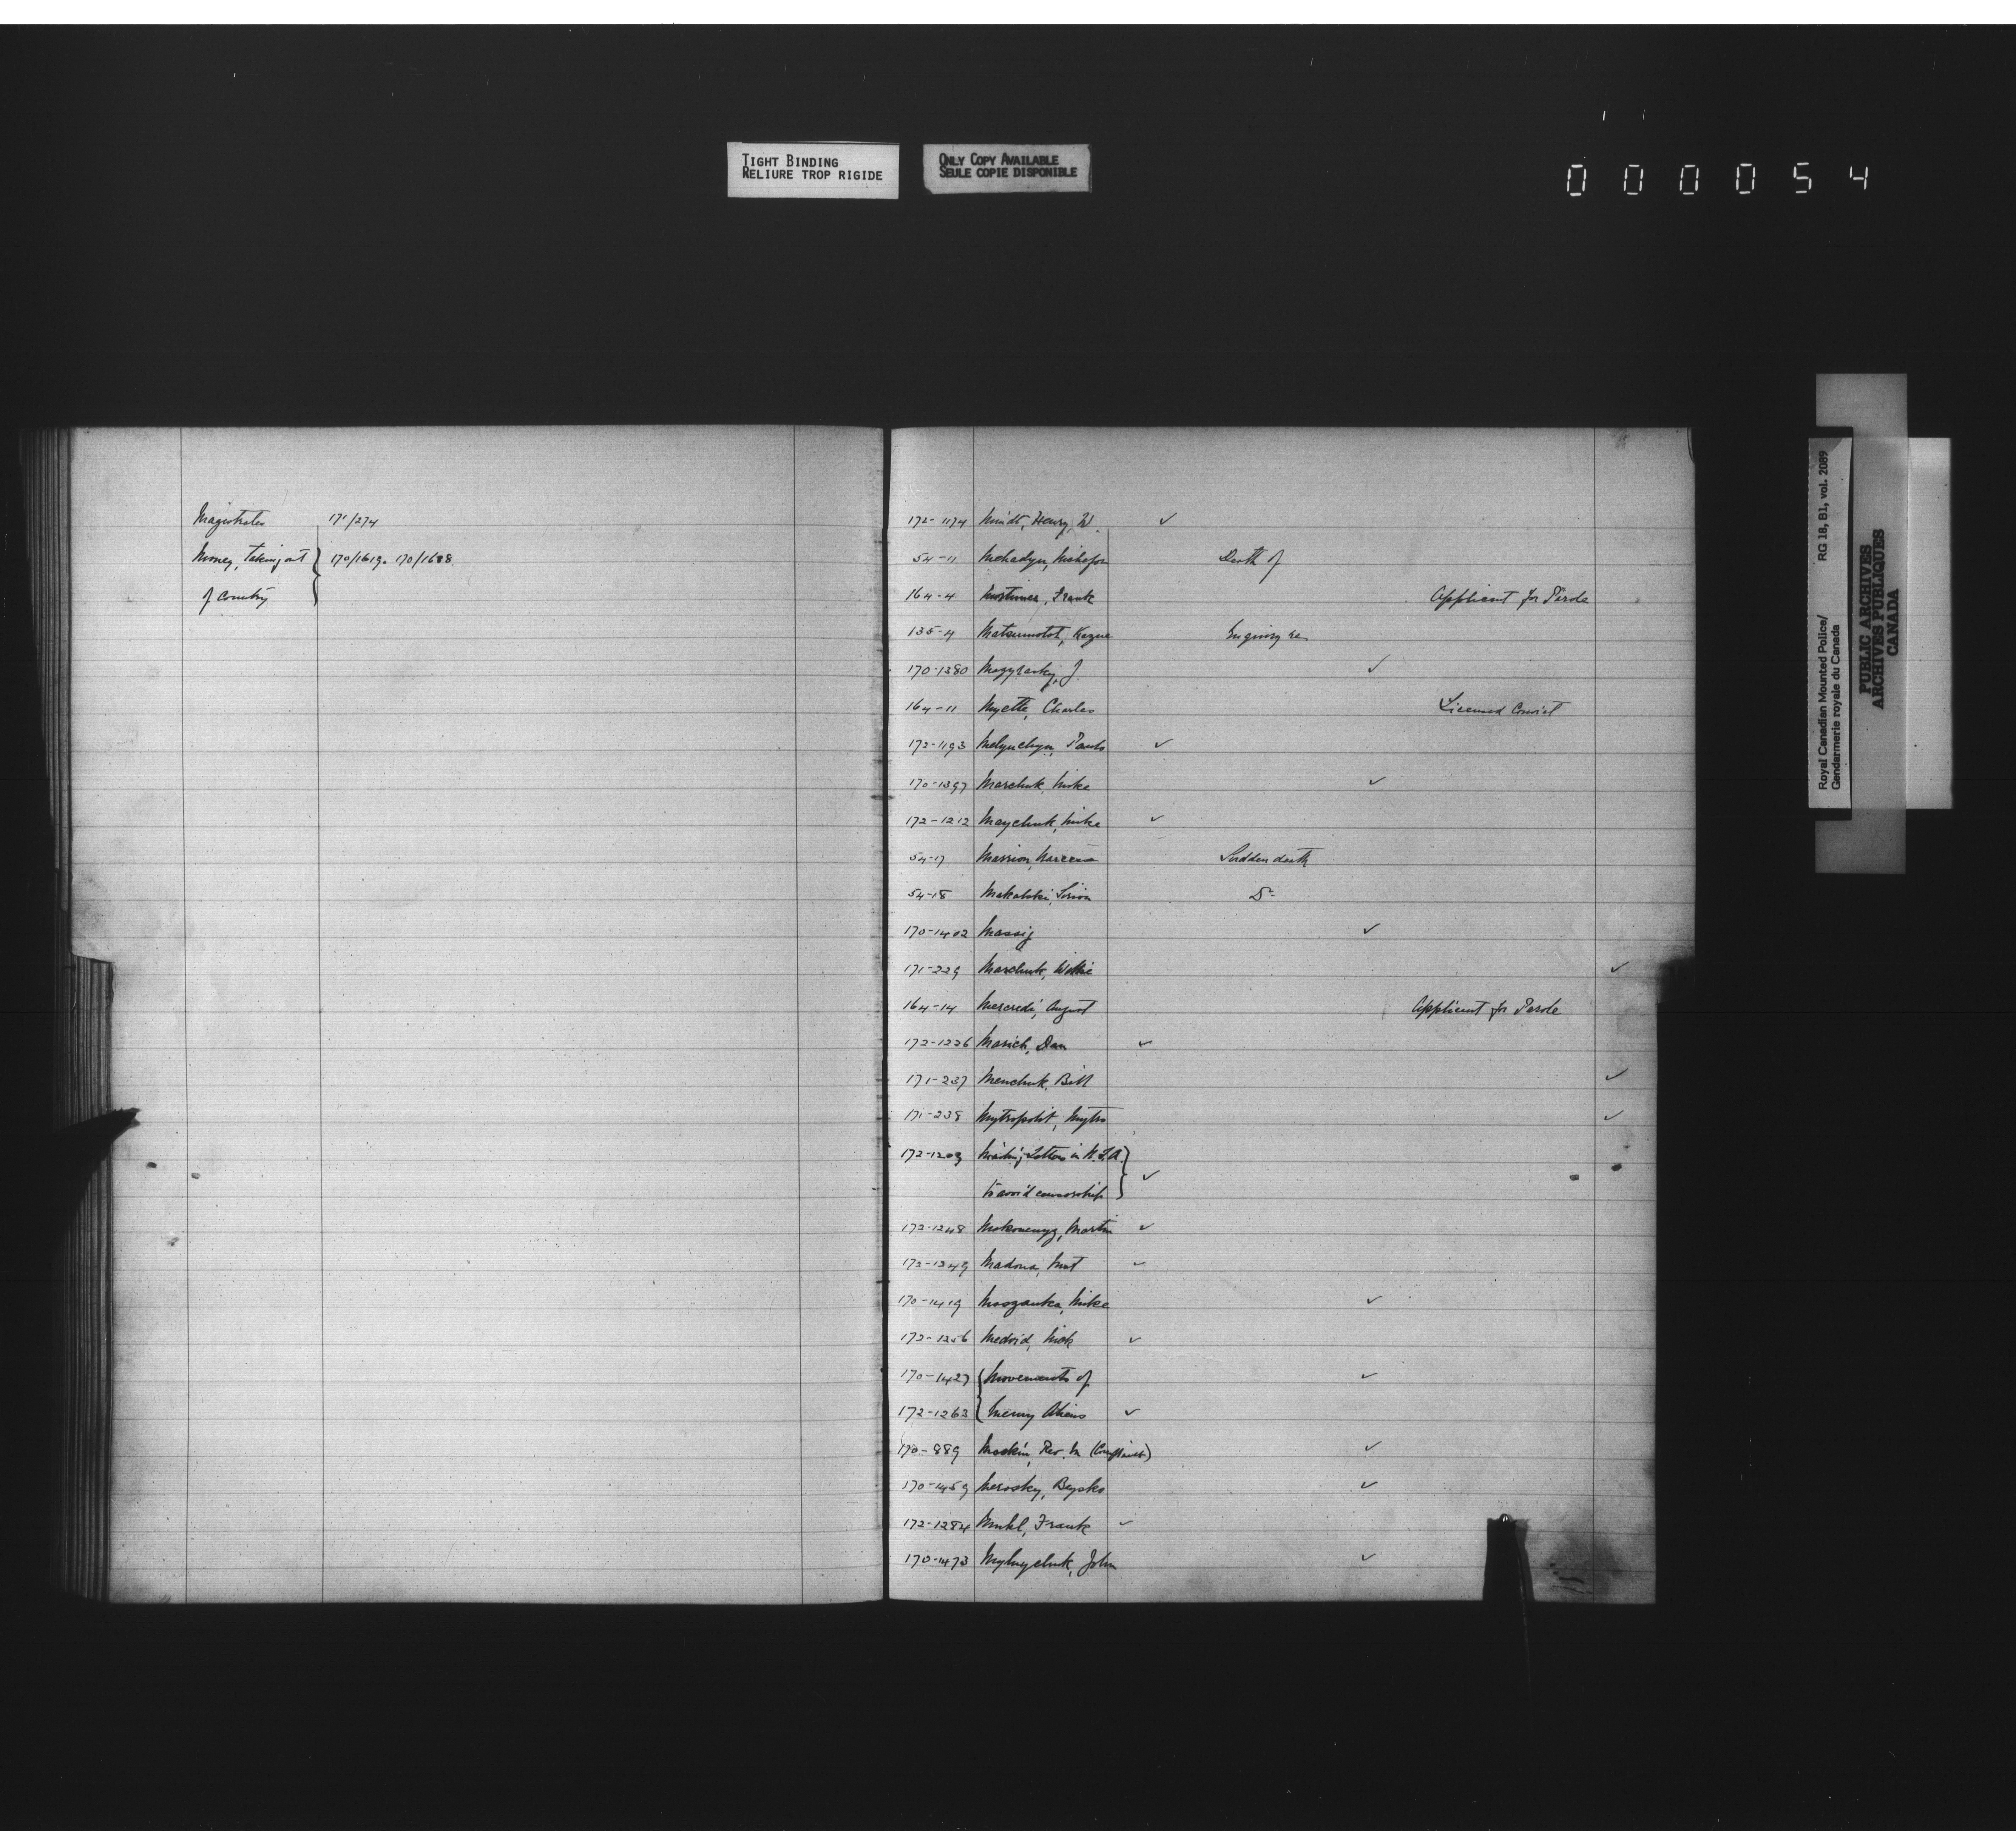 TIGHT BINDING
RELIURE TROP RIGIDE
ONLY COPY AVAILABLE
SEULE COPIE DISPONIBLE
000054
Magistrates 171/274
Money, taking out 170/1619. 170/1688
of Country
172-1174 Henry, W. ✓
54-11 Death of
164-4 Mortimer, Frank Applicant for Parole
135-4 Matsumotot, Kazue Enquiry re
170-1380 J. ✓
164-11 Myette, Charles Licensed Convict
172-1193 Melynchyn, ✓
170-1397 Marchuk, Mike ✓
172-1212 Maychuk, Mike ✓
54-17 Massion, Sudden death
54-18 Do
170-1402 Massig ✓
171-229 Marchuk, Willie ✓
164-14 Mercredi, August Applicant for Parole
172-1226 Marich, Dan ✓
171-237 Menchuk, Bill ✓
171-238 Mytropolit, Mytro ✓
172-1203 Mailing Letters in U.S.A.
to avoid censorship ✓
172-1248 Martin ✓
172-1249 Madona, ✓
170-1419 Moszanka, Mike ✓
172-1256 Medvid, Nick ✓
170-1427 Movements of ✓
172-1263 Enemy Aliens ✓
170-889 Rev. M (Complaint) ✓
170-1459 Merosky, ✓
172-1284 Muhl, Frank ✓
170-1473 John ✓
Royal Canadian Mounted Police/ RG 18, B1, vol. 2089
Gendarmerie royale du Canada
PUBLIC ARCHIVES
ARCHIVES PUBLIQUES
CANADA